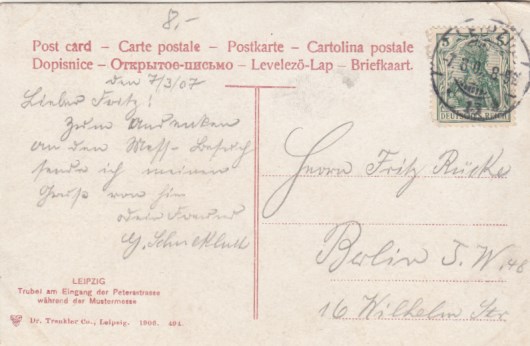 8,-
Post card – Carte postale – Postkarte – Cartolina postale
Dopisnice – Открытое-письмо – Levelező-Lap – Briefkaart.
den 7/3/07
Lieber Fritz!
Zum Andenken
an den Mess-Besuch
sende ich meinen
Gruss von hier
Dein Freund
LEIPZIG
DEUTSCHES REICH
Herrn Fritz Rücke
Berlin S. W.
16 Wilhelm Str
LEIPZIG
Trubel am Eingang der Petersstrasse
während der Mustermesse
Dr. Trenkler Co., Leipzig. 1906. 401.